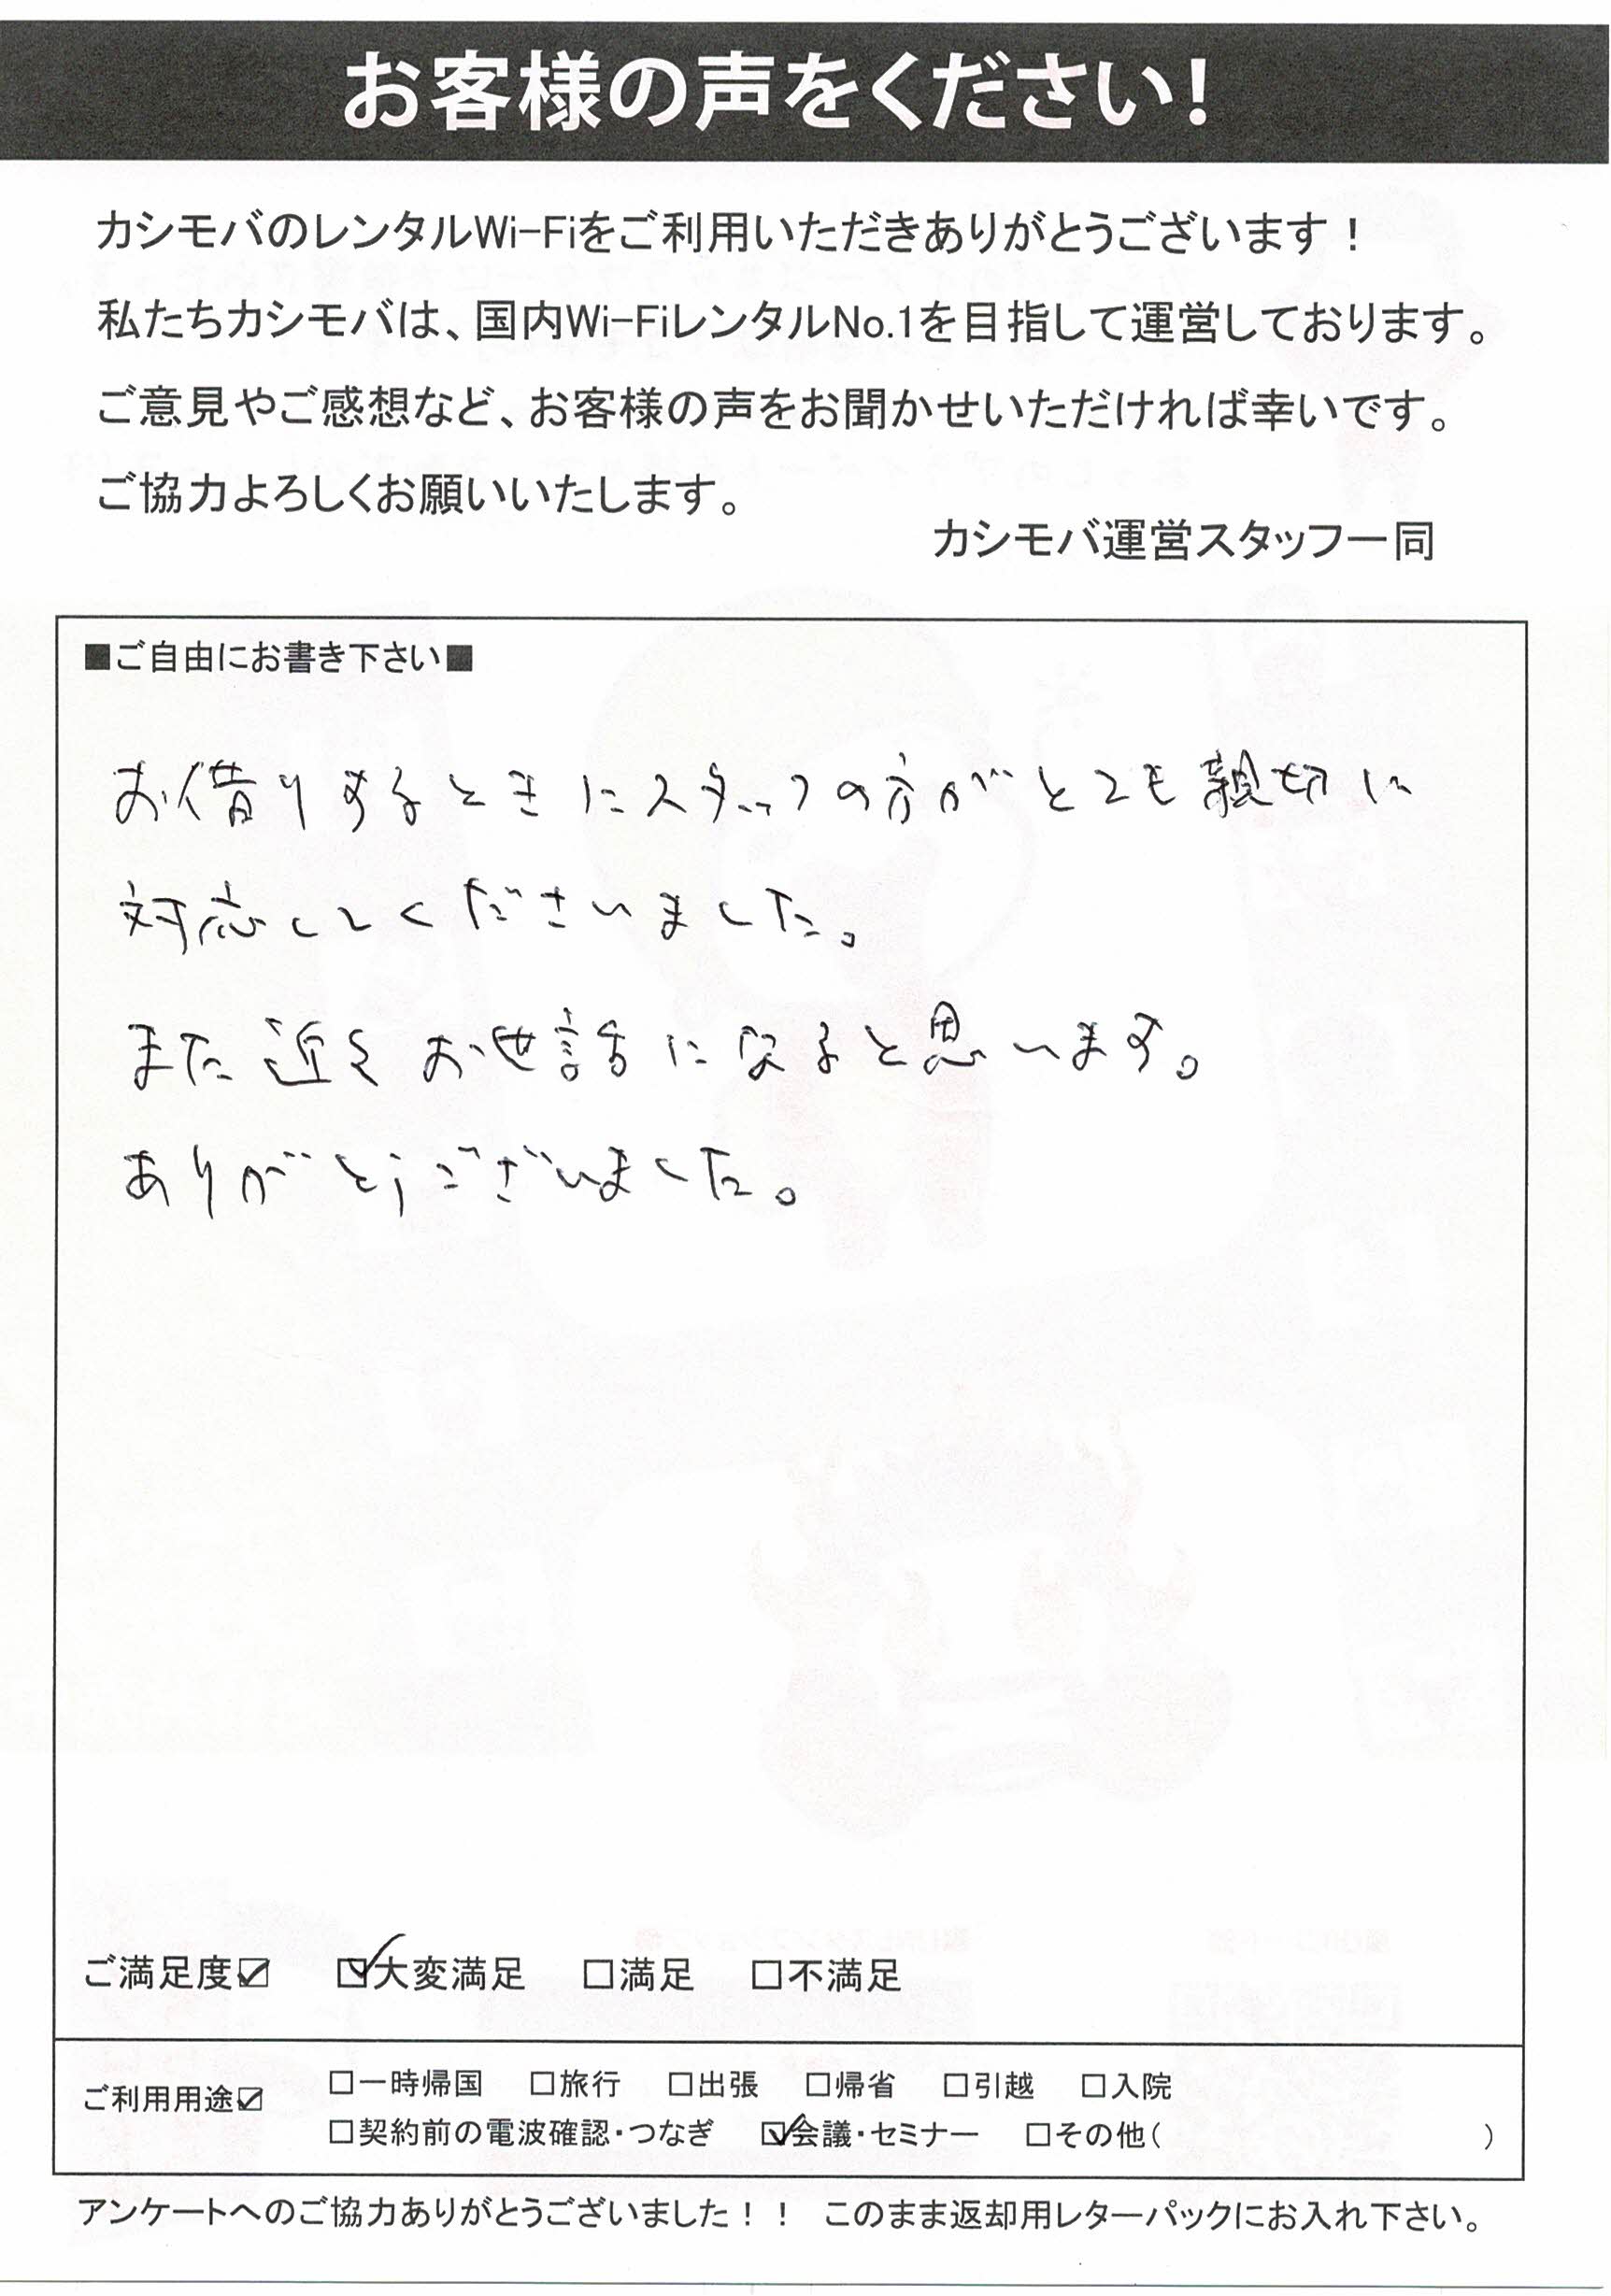 お客様の声をください!
カシモバのレンタルWi-Fiをご利用いただきありがとうございます！
私たちカシモバは、国内Wi-FiレンタルNo.1を目指して運営しております。
ご意見やご感想など、お客様の声をお聞かせいただければ幸いです。
ご協力よろしくお願いいたします。
カシモバ運営スタッフ一同
■ご自由にお書き下さい■
お借りするときにスタッフの方がとても親切に
対応してくださいました。
また近々お世話になると思います。
ありがとうございました。
ご満足度☑ ☑大変満足 □満足 □不満足
ご利用用途☑ □一時帰国 □旅行 □出張 □帰省 □引越 □入院
□契約前の電波確認・つなぎ ☑会議・セミナー □その他( )
アンケートへのご協力ありがとうございました！！ このまま返却用レターパックにお入れ下さい。